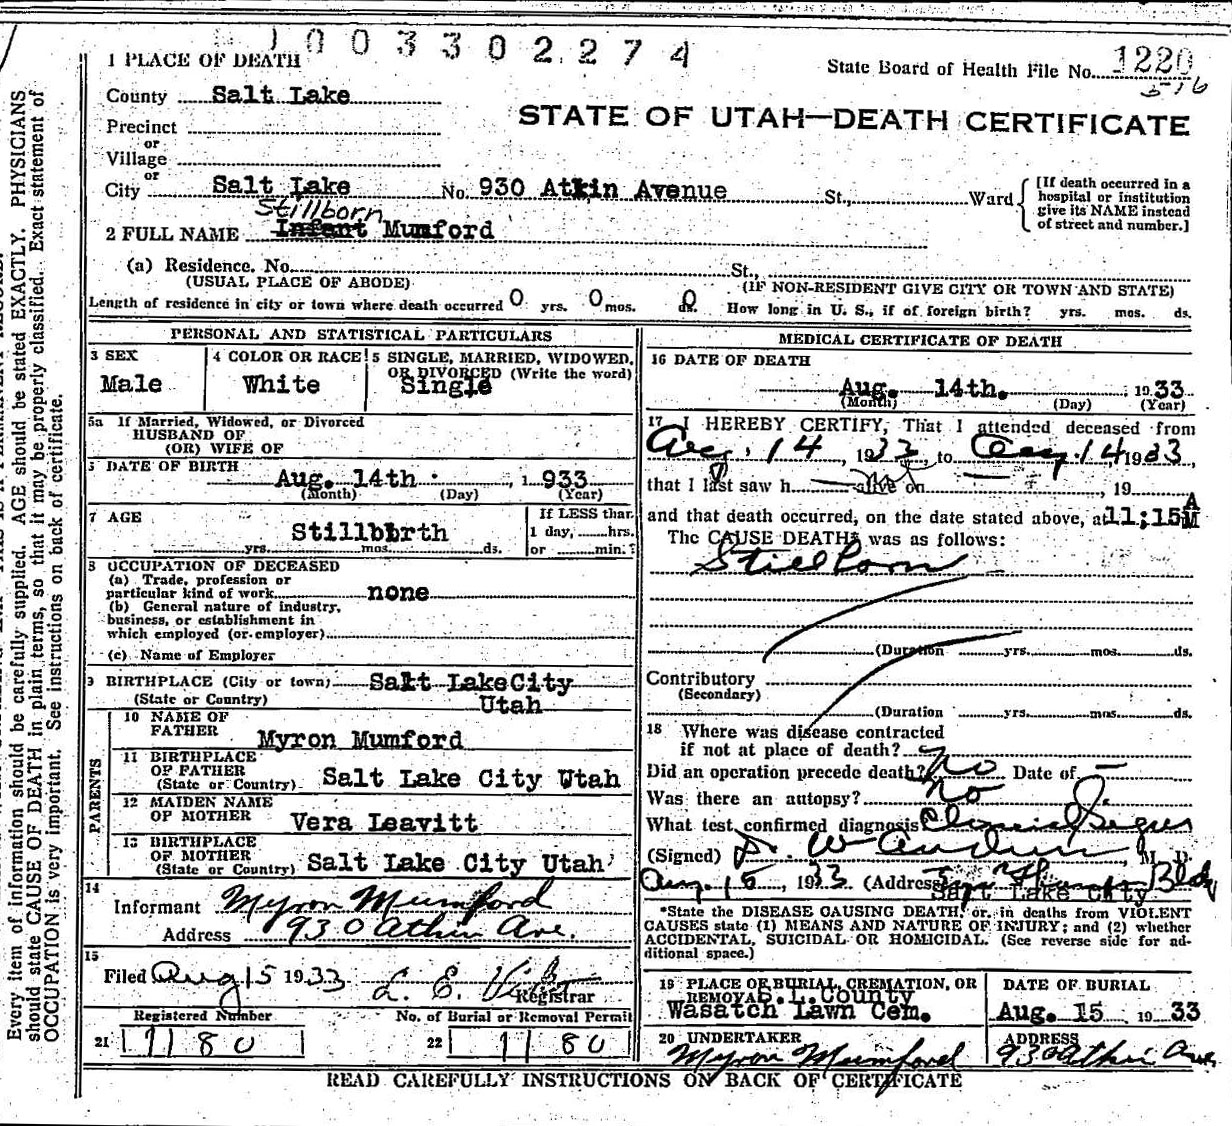 1003302274
State Board of Health File No. 1220
STATE OF UTAH—DEATH CERTIFICATE
1 PLACE OF DEATH
County Salt Lake
Precinct
or
Village
or
City Salt Lake No. 930 Atkin Avenue St., Ward
[If death occurred in a
hospital or institution
give its NAME instead
of street and number.]
Stillborn
2 FULL NAME Infant Mumford
(a) Residence. No. St.,
(USUAL PLACE OF ABODE) (IF NON-RESIDENT GIVE CITY OR TOWN AND STATE)
Length of residence in city or town where death occurred 0 yrs. 0 mos. 0 ds. How long in U. S., if of foreign birth? yrs. mos. ds.
PERSONAL AND STATISTICAL PARTICULARS
3 SEX
Male
4 COLOR OR RACE
White
5 SINGLE, MARRIED, WIDOWED,
OR DIVORCED (Write the word)
Single
5a If Married, Widowed, or Divorced
HUSBAND OF
(OR) WIFE OF
DATE OF BIRTH
Aug. 14th 1933
(Month) (Day) (Year)
7 AGE
Stillbirth
yrs. mos. ds.
If LESS than
1 day, hrs.
or min.?
8 OCCUPATION OF DECEASED
(a) Trade, profession or
particular kind of work none
(b) General nature of industry,
business, or establishment in
which employed (or employer)
(c) Name of Employer
9 BIRTHPLACE (City or town) Salt Lake City
(State or Country) Utah
PARENTS
10 NAME OF
FATHER Myron Mumford
11 BIRTHPLACE
OF FATHER
(State or Country) Salt Lake City Utah
12 MAIDEN NAME
OF MOTHER Vera Leavitt
13 BIRTHPLACE
OF MOTHER
(State or Country) Salt Lake City Utah
14
Informant Myron Mumford
Address 930 Atkin Ave.
15
Filed Aug 15 1933 L. E.
Registrar
Registered Number
21 1180
No. of Burial or Removal Permit
22 1180
MEDICAL CERTIFICATE OF DEATH
16 DATE OF DEATH
Aug. 14th. 1933
(Month) (Day) (Year)
17 I HEREBY CERTIFY, That I attended deceased from
Aug. 14, 1933, to Aug. 14 1933,
that I last saw h alive on , 19
and that death occurred, on the date stated above, at 11;15 A M
The CAUSE DEATH was as follows:
Stillborn
(Duration yrs. mos. ds.
Contributory
(Secondary)
(Duration yrs. mos. ds.
18 Where was disease contracted
if not at place of death?
Did an operation precede death? No Date of —
Was there an autopsy? No
What test confirmed diagnosis Clinical Signs
(Signed) M. D.
Aug. 15, 1933 (Address Bldg
Salt Lake City
*State the DISEASE CAUSING DEATH, or, in deaths from VIOLENT
CAUSES state (1) MEANS AND NATURE OF INJURY; and (2) whether
ACCIDENTAL, SUICIDAL OR HOMICIDAL. (See reverse side for ad-
ditional space.)
19 PLACE OF BURIAL, CREMATION, OR
REMOVAL S. L. County
Wasatch Lawn Cem.
DATE OF BURIAL
Aug. 15 1933
20 UNDERTAKER
Myron Mumford
ADDRESS
930 Atkin Ave.
READ CAREFULLY INSTRUCTIONS ON BACK OF CERTIFICATE
Every item of information should be carefully supplied. AGE should be stated EXACTLY. PHYSICIANS
should state CAUSE OF DEATH in plain terms, so that it may be properly classified. Exact statement of
OCCUPATION is very important. See instructions on back of certificate.